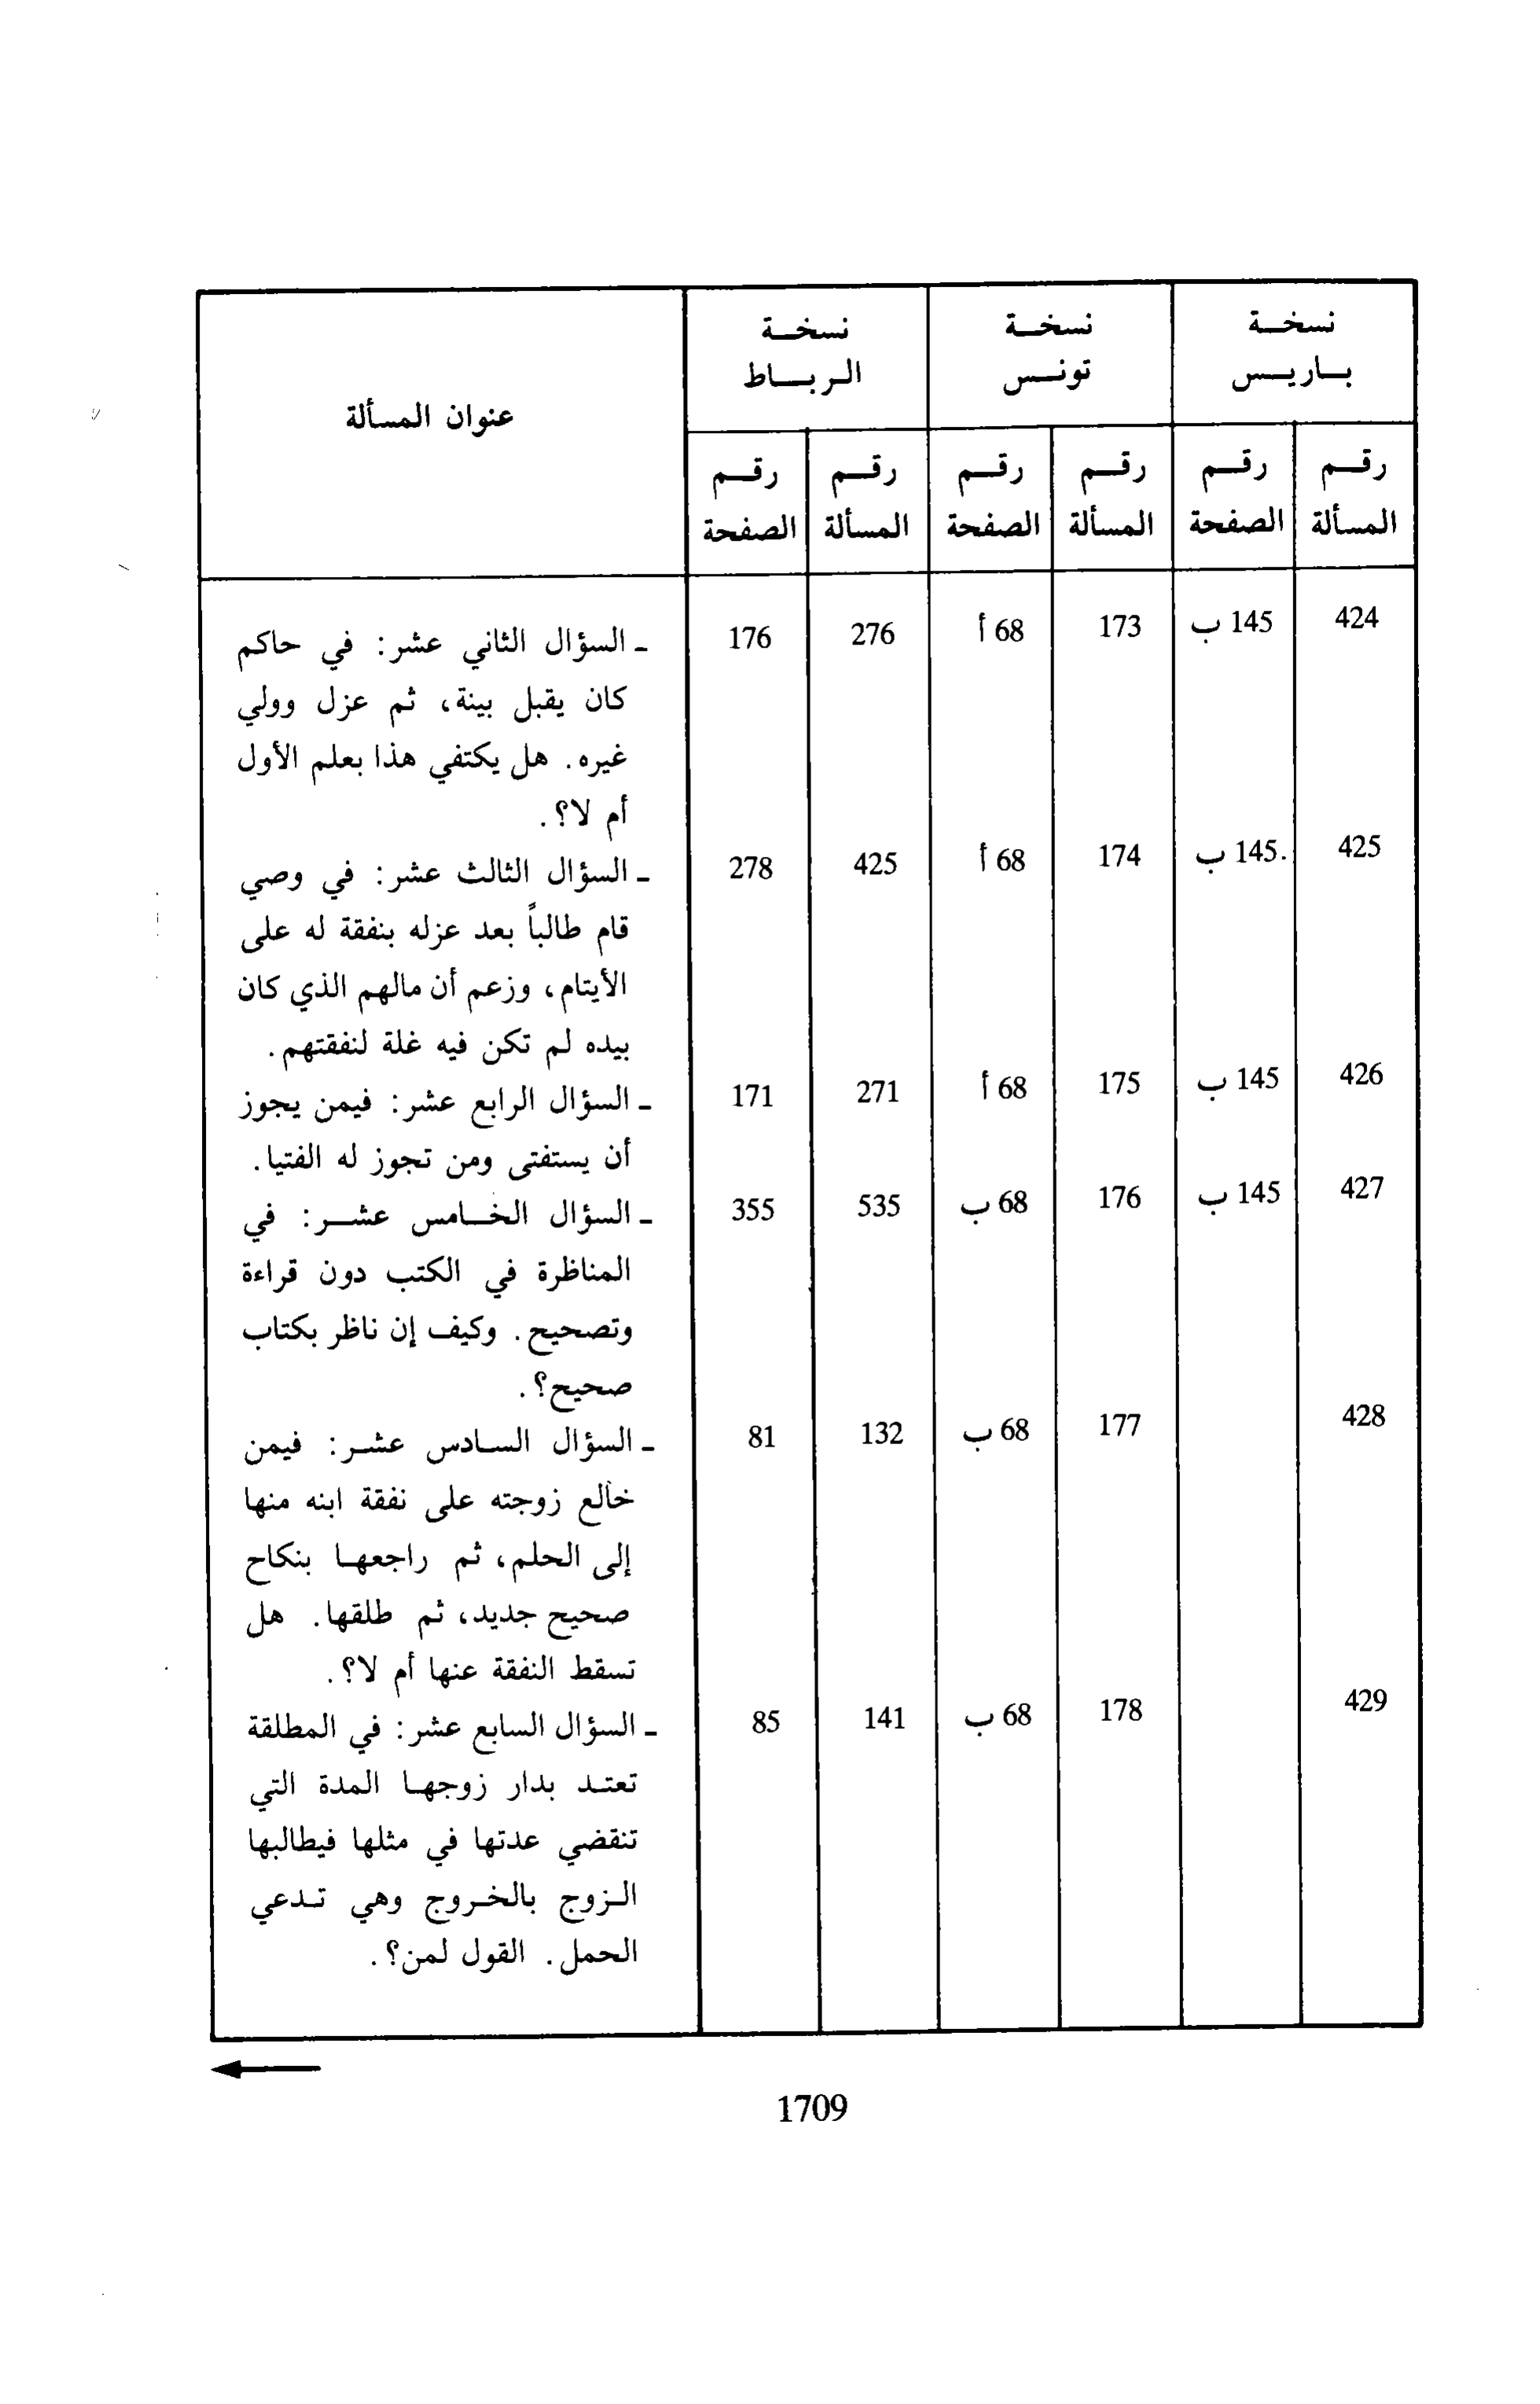 نسخة نسخة نسخة عنوان المسألة
باريس تونس الرباط
رقم رقم رقم رقم رقم رقم
المسألة الصفحة المسألة الصفحة المسألة الصفحة
424 145 ب 173 68 أ 276 176 - السؤال الثاني عشر: في حاكم
كان يقبل بينة، ثم عزل وولي
غيره. هل يكتفي هذا بعلم الأول
أم لا؟.
425 145. ب 174 68 أ 425 278 - السؤال الثالث عشر: في وصي
قام طالباً بعد عزله بنفقة له على
الأيتام، وزعم أن مالهم الذي كان
بيده لم تكن فيه غلة لنفقتهم.
426 145 ب 175 68 أ 271 171 - السؤال الرابع عشر: فيمن يجوز
أن يستفتى ومن تجوز له الفتيا.
427 145 ب 176 68 ب 535 355 - السؤال الخامس عشر: في
المناظرة في الكتب دون قراءة
وتصحيح. وكيف إن ناظر بكتاب
صحيح؟.
428 177 68 ب 132 81 - السؤال السادس عشر: فيمن
خالع زوجته على نفقة ابنه منها
إلى الحلم، ثم راجعها بنكاح
صحيح جديد، ثم طلقها. هل
تسقط النفقة عنها أم لا؟.
429 178 68 ب 141 85 - السؤال السابع عشر: في المطلقة
تعتد بدار زوجها المدة التي
تنقضي عدتها في مثلها فيطالبها
الزوج بالخروج وهي تدعي
الحمل. القول لمن؟.
1709